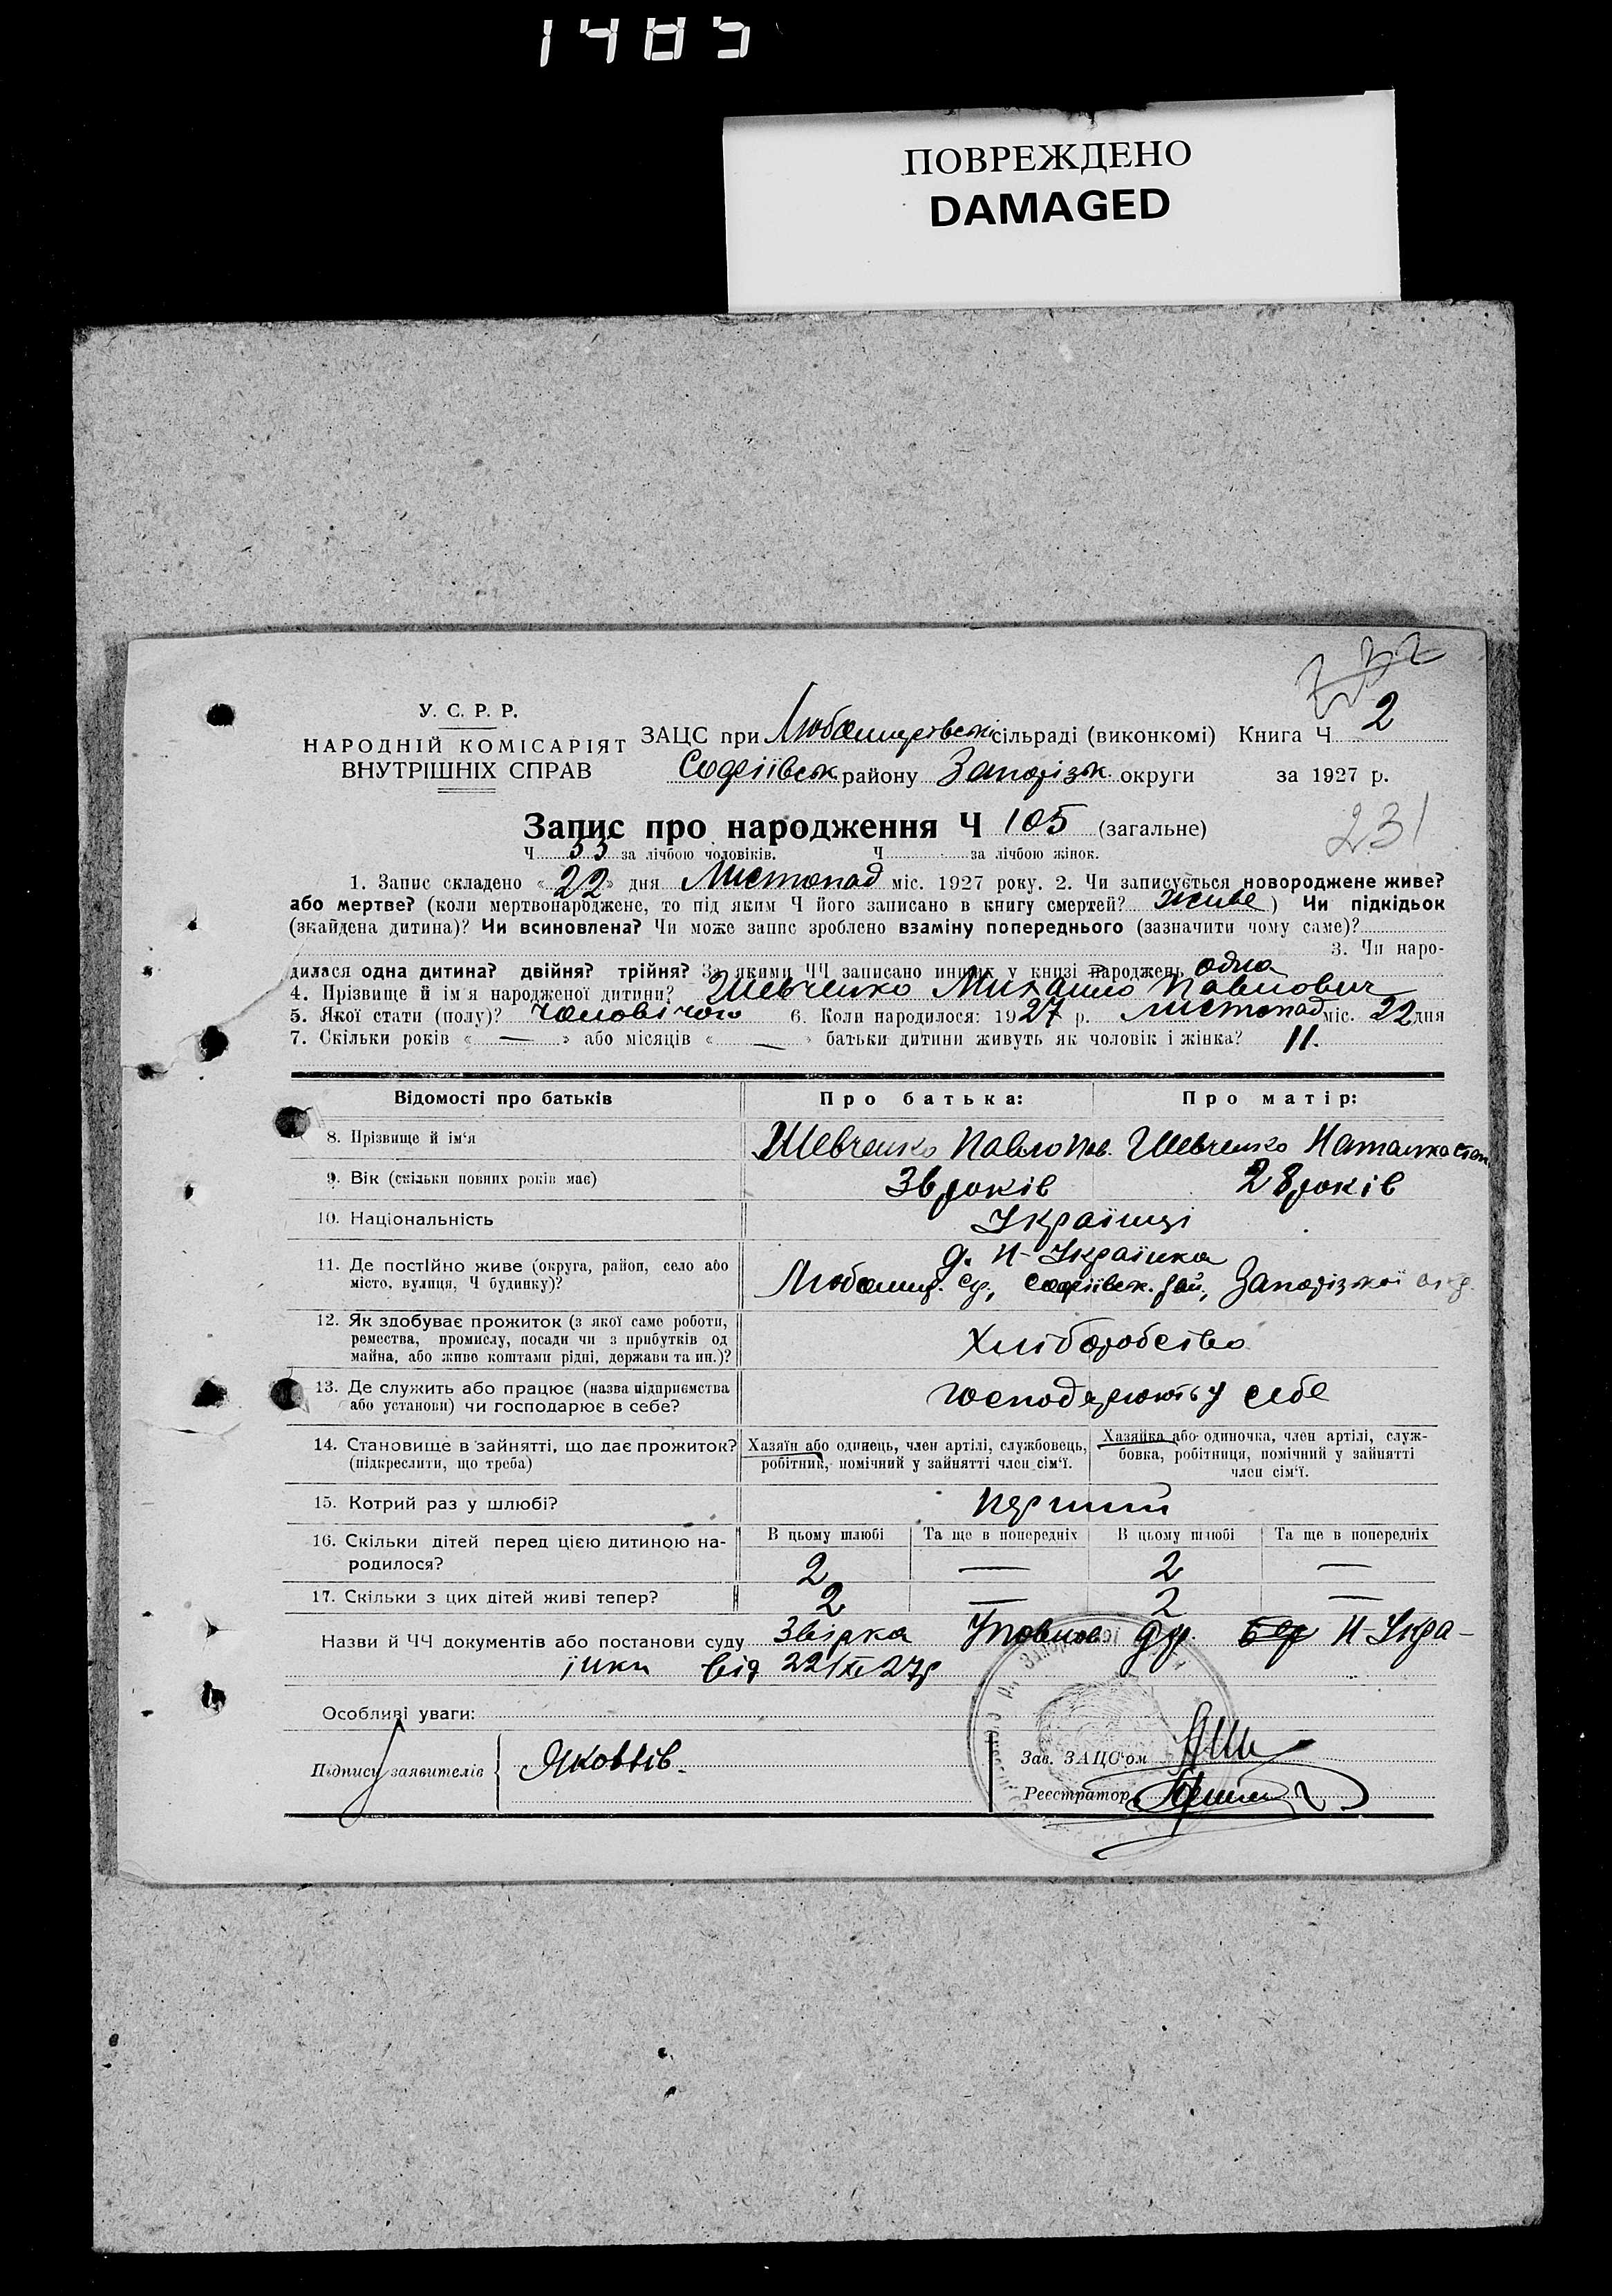 1485
ПОВРЕЖДЕНО
DAMAGED
232
У. С. Р. Р.
НАРОДНІЙ КОМІСАРІЯТ
ВНУТРІШНІХ СПРАВ
ЗАЦС при Любомировські сільраді (виконкомі) Книга Ч 2
Софіївськ району Запорізьк. округи за 1927 р.
Запис про народження Ч 105 (загальне)
231
Ч 53 за лічбою чоловіків. Ч за лічбою жінок.
1. Запис складено «22» дня Листопад міс. 1927 року. 2. Чи записується новороджене живе?
або мертве? (коли мертвонароджене, то під яким Ч його записано в книгу смертей? живе) Чи підкідьок
(знайдена дитина)? Чи всиновлена? Чи може запис зроблено взаміну попереднього (зазначити чому саме)?
3. Чи наро-
дилася одна дитина? двійня? трійня? За якими ЧЧ записано инших у книзі народжень одна
4. Прізвище й ім'я народженої дитини? Шевченко Михайло Павлович
5. Якої стати (полу)? чоловічого 6. Коли народилося: 1927 р. листопад міс. 22 дня
7. Скільки років « — » або місяців « — » батьки дитини живуть як чоловік і жінка? 11.
Відомості про батьків Про батька: Про матір:
8. Прізвище й ім'я Шевченко Павло Пав. Шевченко Наталка Степ
9. Вік (скільки повних років має) 36 років 28 років
10. Національність Українці
11. Де постійно живе (округа, район, село або
місто, вулиця, Ч будинку)?
д. Н-Українка
Любомир. ср., Софіївськ. рай, Запорізької окр.
12. Як здобуває прожиток (з якої саме роботи,
ремества, промислу, посади чи з прибутків од
майна, або живе коштами рідні, держави та ин.)?
Хліборобство
13. Де служить або працює (назва підприємства
або установи) чи господарює в себе?
Господарюють у себе
14. Становище в зайнятті, що дає прожиток?
(підкреслити, що треба)
Хазяїн або одинець, член артілі, службовець,
робітник, помічний у зайнятті член сім'ї.
Хазяйка або одиночка, член артілі, служ-
бовка, робітниця, помічний у зайнятті
член сім'ї.
15. Котрий раз у шлюбі? перший
16. Скільки дітей перед цією дитиною на-
родилося?
В цьому шлюбі Та ще в попередніх В цьому шлюбі Та ще в попередніх
2 — 2 —
17. Скільки з цих дітей живі тепер? 2 — 2 —
Назви й ЧЧ документів або постанови суду Звірка Уповнов д Н-Укра-
їнки від 22/XI 27р
Особливі уваги:
Підписи заявителів Яковлів.
Зав. ЗАЦС'ом
Реєстратор